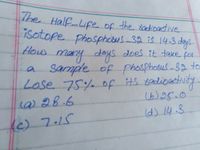 The Half-Life of the radioactive
isotope phosphorus-32 is 14.3 days.
How many days does it take for
a sample of phosphorus-32 to
Lose 75% of its radioactivity.
(a) 28.6 (b) 25.0
(c) 7.15 (d) 14.3